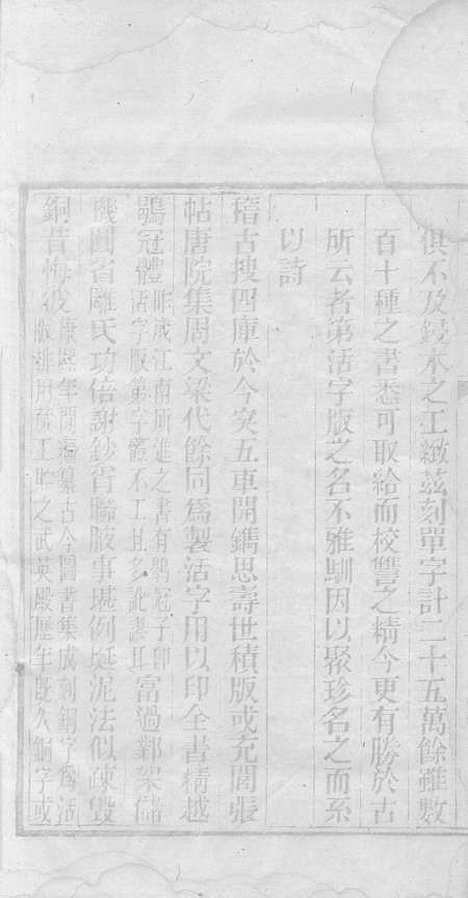 俱不及鋟木之工緻兹刻單字計二十五萬餘雖數
百十種之書悉可取給而校讐之精今更有勝於古
所云者第活字版之名不雅馴因以聚珍名之而系
以詩
稽古搜四庫於今突五車開鐫思壽世積版或充閭張
帖唐院集周文梁代餘同爲製活字用以印全書精越
鶡冠體昨歲江南所進之書有鶡冠子印
活字版第字體不工且多訛謬耳富過鄴架儲
機圓省雕氏功倍謝鈔胥聯腋事堪例埏泥法似疎毀
銅昔悔彼康熙年間編纂古今圖書集成刻銅字爲活
版排用蕆工貯之武英殿歷年既久銅字或